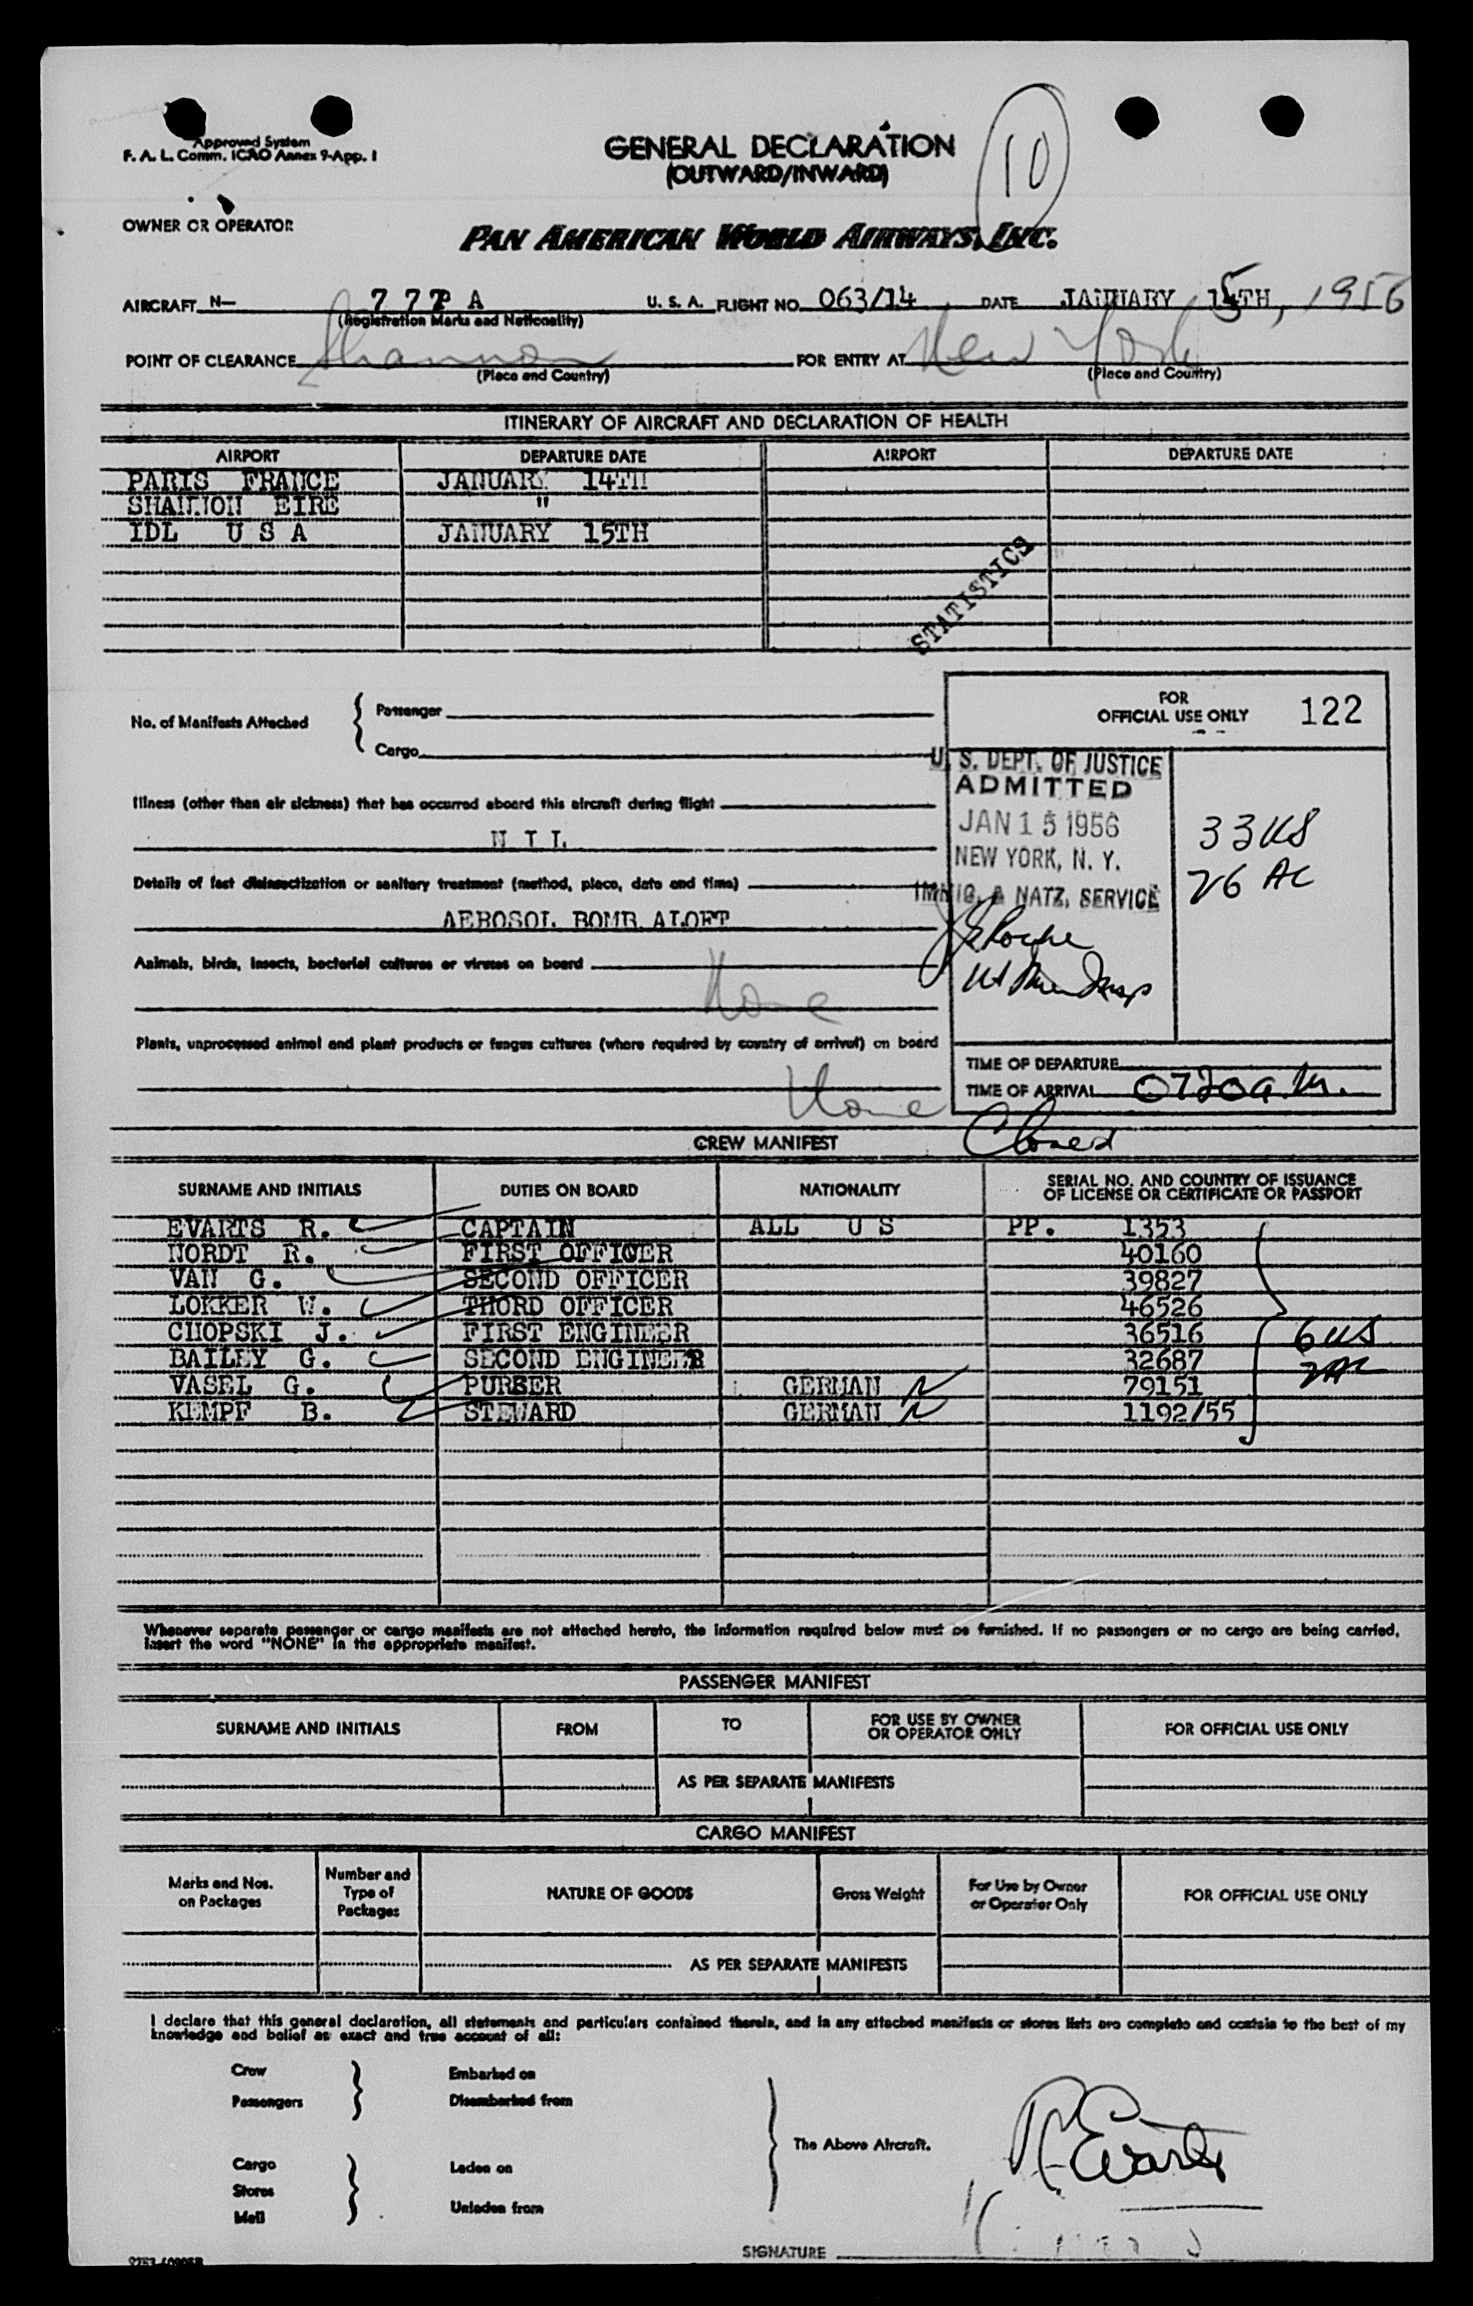 Approved System
F. A. L. Comm. ICAO Annex 9-App. 1
GENERAL DECLARATION
(OUTWARD/INWARD)
10
OWNER OR OPERATOR
PAN AMERICAN WORLD AIRWAYS, INC.
AIRCRAFT N— 777PA U. S. A. FLIGHT NO. 063/14 DATE JANUARY 15TH, 1956
(Registration Marks and Nationality)
POINT OF CLEARANCE Shannon FOR ENTRY AT New York
(Place and Country) (Place and Country)
ITINERARY OF AIRCRAFT AND DECLARATION OF HEALTH
AIRPORT DEPARTURE DATE AIRPORT DEPARTURE DATE
PARIS FRANCE JANUARY 14TH
SHANNON EIRE "
IDL U S A JANUARY 15TH
STATISTICS
No. of Manifests Attached { Passenger
Cargo
FOR
OFFICIAL USE ONLY 122
U. S. DEPT. OF JUSTICE
ADMITTED
JAN 15 1956
NEW YORK, N. Y.
IMMIG. & NATZ. SERVICE
33 US
26 AC
Illness (other than air sickness) that has occurred aboard this aircraft during flight
N I L
Details of last disinsectization or sanitary treatment (method, place, date and time)
AEROSOL BOMB ALOFT
Animals, birds, insects, bacterial cultures or viruses on board
None
Plants, unprocessed animal and plant products or fungus cultures (where required by country of arrival) on board
None
TIME OF DEPARTURE
TIME OF ARRIVAL 0720 a.m.
Closed
CREW MANIFEST
SURNAME AND INITIALS DUTIES ON BOARD NATIONALITY SERIAL NO. AND COUNTRY OF ISSUANCE
OF LICENSE OR CERTIFICATE OR PASSPORT
EVARTS R. CAPTAIN ALL U S PP. 1353
NORDT R. FIRST OFFICER 40160
VAN G. SECOND OFFICER 39827
LOKKER W. THORD OFFICER 46526
CHOPSKI J. FIRST ENGINEER 36516
BAILEY G. SECOND ENGINEER 32687
VASEL G. PURSER GERMAN 79151
KEMPF B. STEWARD GERMAN 1192/55
6 US
2 AC
Whenever separate passenger or cargo manifests are not attached hereto, the information required below must be furnished. If no passengers or no cargo are being carried,
insert the word "NONE" in the appropriate manifest.
PASSENGER MANIFEST
SURNAME AND INITIALS FROM TO FOR USE BY OWNER
OR OPERATOR ONLY FOR OFFICIAL USE ONLY
AS PER SEPARATE MANIFESTS
CARGO MANIFEST
Marks and Nos.
on Packages Number and
Type of
Packages NATURE OF GOODS Gross Weight For Use by Owner
or Operator Only FOR OFFICIAL USE ONLY
AS PER SEPARATE MANIFESTS
I declare that this general declaration, all statements and particulars contained therein, and in any attached manifests or stores lists are complete and contain to the best of my
knowledge and belief as exact and true account of all:
Crew Embarked on
Passengers Disembarked from
The Above Aircraft.
Cargo Laden on
Stores
Mail Unladen from
R. Evarts
SIGNATURE